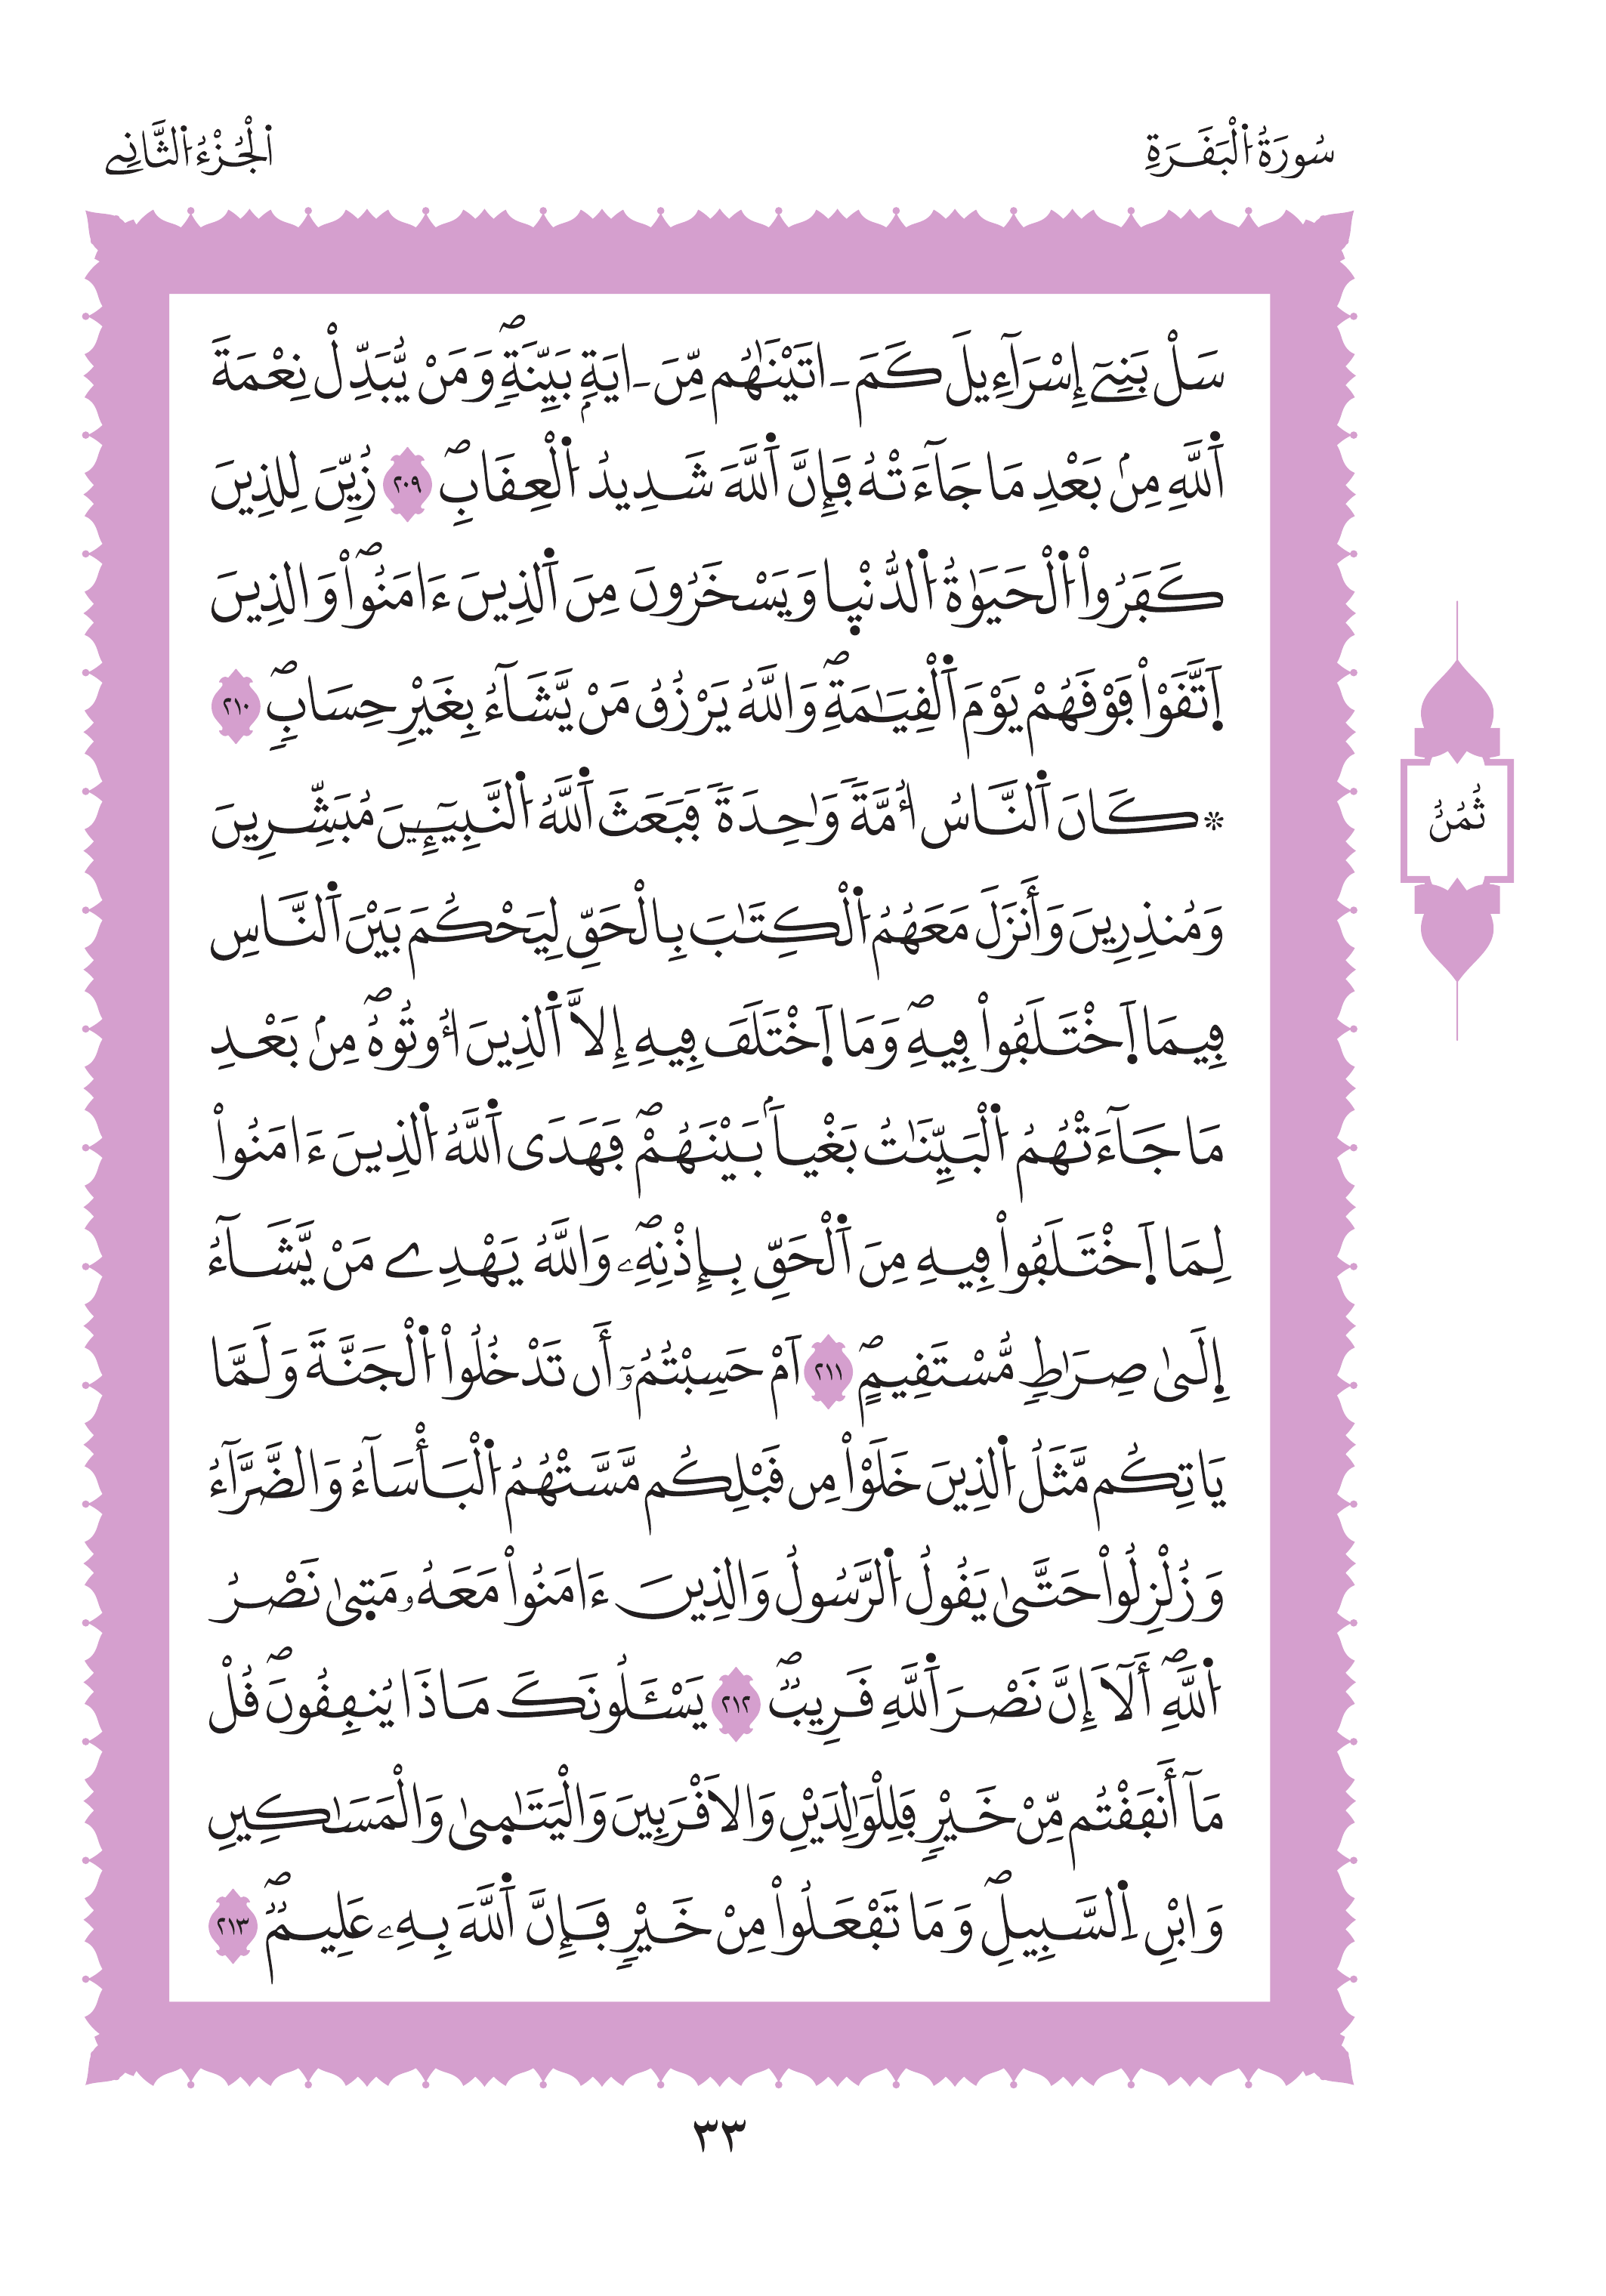 سُورَةُ اُ۬لْبَقَرَةِ
اَ۬لْجُزْءُ اُ۬لثَّانِے
سَلْ بَنِےٓ إِسْرَآءِيلَ كَمَ ـ اتَيْنَٰهُم مِّنَ ـ ايَةِۢ بَيِّنَةٖۖ وَمَنْ يُّبَدِّلْ نِعْمَةَ
اَ۬للَّهِ مِنۢ بَعْدِ مَا جَآءَتْهُ فَإِنَّ اَ۬للَّهَ شَدِيدُ اُ۬لْعِقَابِۖ ٢٠٩ زُيِّنَ لِلذِينَ
كَفَرُواْ اُ۬لْحَيَوٰةُ اُ۬لدُّنْي۪ا وَيَسْخَرُونَ مِنَ اَ۬لذِينَ ءَامَنُواْۖ وَالذِينَ
اَ۪تَّقَوْاْ فَوْقَهُمْ يَوْمَ اَ۬لْقِيَٰمَةِۖ وَاللَّهُ يَرْزُقُ مَنْ يَّشَآءُ بِغَيْرِ حِسَابٖۖ ٢١٠
۞ كَانَ اَ۬لنَّاسُ أُمَّةٗ وَٰحِدَةٗ فَبَعَثَ اَ۬للَّهُ اُ۬لنَّبِيٓـِٕينَ مُبَشِّرِينَ
وَمُنذِرِينَ وَأَنزَلَ مَعَهُمُ اُ۬لْكِتَٰبَ بِالْحَقِّ لِيَحْكُمَ بَيْنَ اَ۬لنَّاسِ
فِيمَا اَ۪خْتَلَفُواْ فِيهِۖ وَمَا اَ۪خْتَلَفَ فِيهِ إِلَّا اَ۬لذِينَ أُوتُوهُۖ مِنۢ بَعْدِ
مَا جَآءَتْهُمُ اُ۬لْبَيِّنَٰتُ بَغْياَۢ بَيْنَهُمْۖ فَهَدَى اَ۬للَّهُ اُ۬لذِينَ ءَامَنُواْ
لِمَا اَ۪خْتَلَفُواْ فِيهِ مِنَ اَ۬لْحَقِّ بِإِذْنِهِۦۖ وَاللَّهُ يَهْدِے مَنْ يَّشَآءُ
اِ۪لَىٰ صِرَٰطٖ مُّسْتَقِيمٍۖ ٢١١ اَمْ حَسِبْتُمُۥٓ أَن تَدْخُلُواْ اُ۬لْجَنَّةَ وَلَمَّا
يَاتِكُم مَّثَلُ اُ۬لذِينَ خَلَوْاْ مِن قَبْلِكُم مَّسَّتْهُمُ اُ۬لْبَأْسَآءُ وَالضَّرَّآءُ
وَزُلْزِلُواْ حَتَّىٰ يَقُولُ اُ۬لرَّسُولُ وَالذِينَ ءَامَنُواْ مَعَهُۥ مَت۪ىٰ نَصْرُ
اُ۬للَّهِۖ أَلَآ إِنَّ نَصْرَ اَ۬للَّهِ قَرِيبٞۖ ٢١٢ يَسْـَٔلُونَكَ مَاذَا يُنفِقُونَۖ قُلْ
مَآ أَنفَقْتُم مِّنْ خَيْرٖ فَلِلْوَٰلِدَيْنِ وَالَاقْرَبِينَ وَالْيَتَٰم۪ىٰ وَالْمَسَٰكِينِ
وَابْنِ اِ۬لسَّبِيلِۖ وَمَا تَفْعَلُواْ مِنْ خَيْرٖ فَإِنَّ اَ۬للَّهَ بِهِۦ عَلِيمٞۖ ٢١٣
ثُمُنُ
٣٣